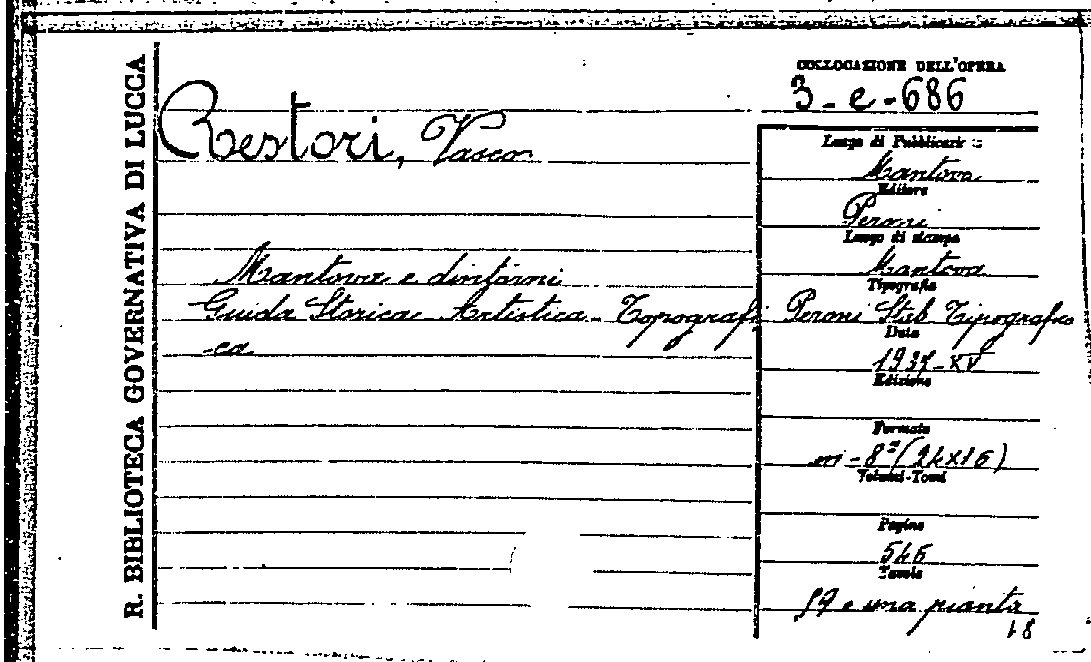 R. BIBLIOTECA GOVERNATIVA DI LUCCA
COLLOCAZIONE DELL'OPERA
3-e-686
Restori, Vasco
Mantova e dintorni
Guida Storica Artistica - Topografi
-ca
Luogo di Pubblicaz
Mantova
Editore
Peroni
Luogo di stampa
Mantova
Tipografia
Peroni Stab Tipografico
Data
1937-XV
Edizione
Formato
in-8º (24x16)
Volumi-Tomi
Pagine
546
Tavole
e una pianta
18